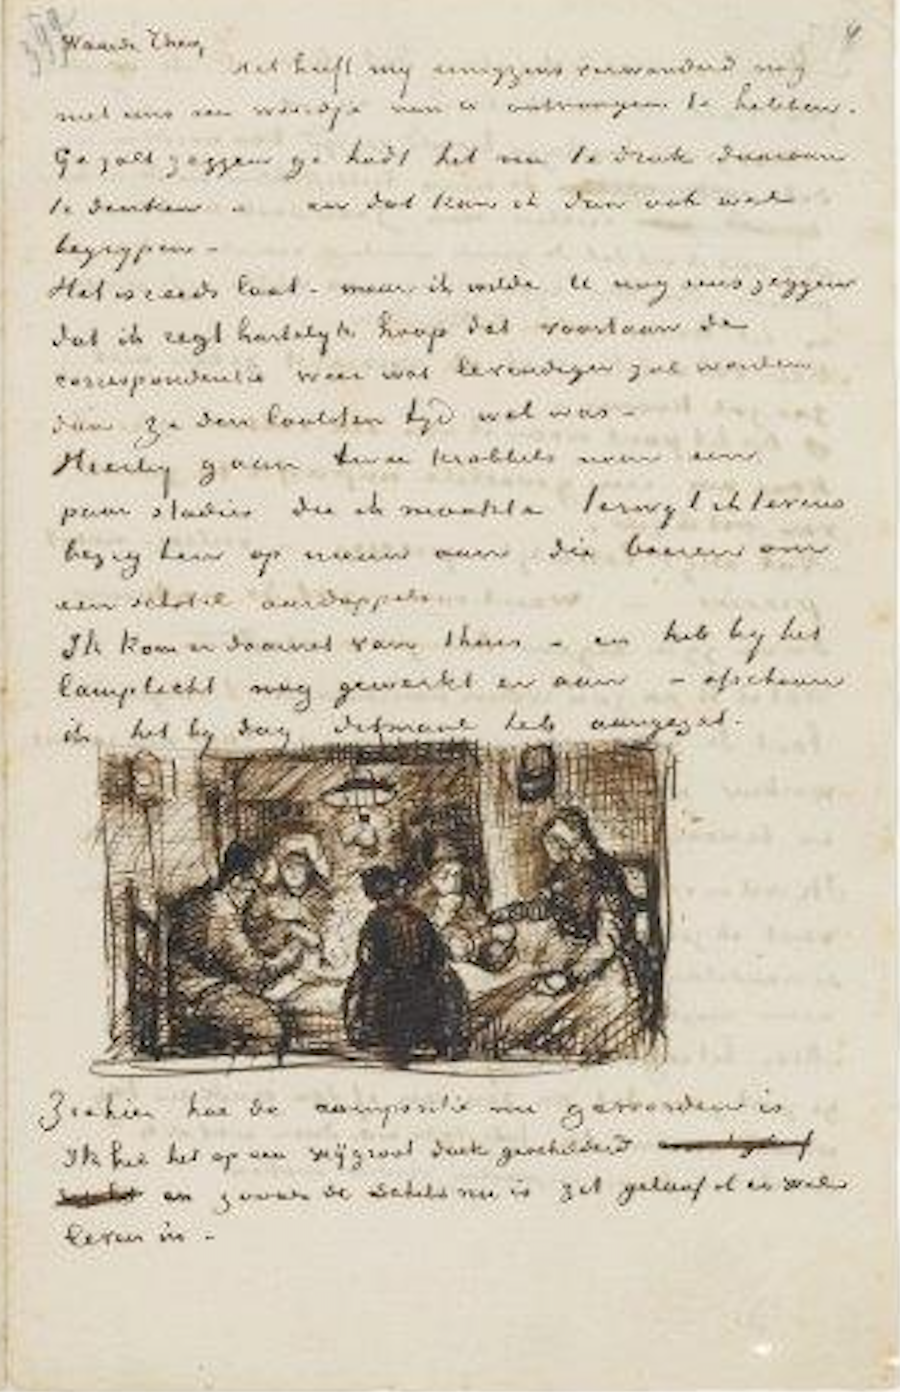 Waarde Theo,
Het heeft mij eenigzins verwonderd nog
niet eens een woordje van U ontvangen te hebben.
Ge zult zeggen ge hadt het nu te druk daaraan
te denken en dat kan ik dan ook wel
begrijpen –
Het is reeds laat – maar ik wilde U nog eens zeggen
dat ik regt hartelijk hoop dat voortaan de
correspondentie weer wat levendiger zal worden
dan ze den laatsten tijd wel was –
Hierbij gaan twee krabbels naar een
paar studies die ik maakte terwijl ik tevens
bezig ben op nieuw aan die boeren om
een schotel aardappels
Ik kom er daarnet van thuis – en heb bij het
lamplicht nog gewerkt er aan – ofschoon
ik het bij dag ditmaal heb aangezet.
Ziehier hoe de compositie nu geworden is
Ik heb het op een vrij groot doek geschilderd
en zooals de schets nu is zit geloof ik er wel
leven in –
399